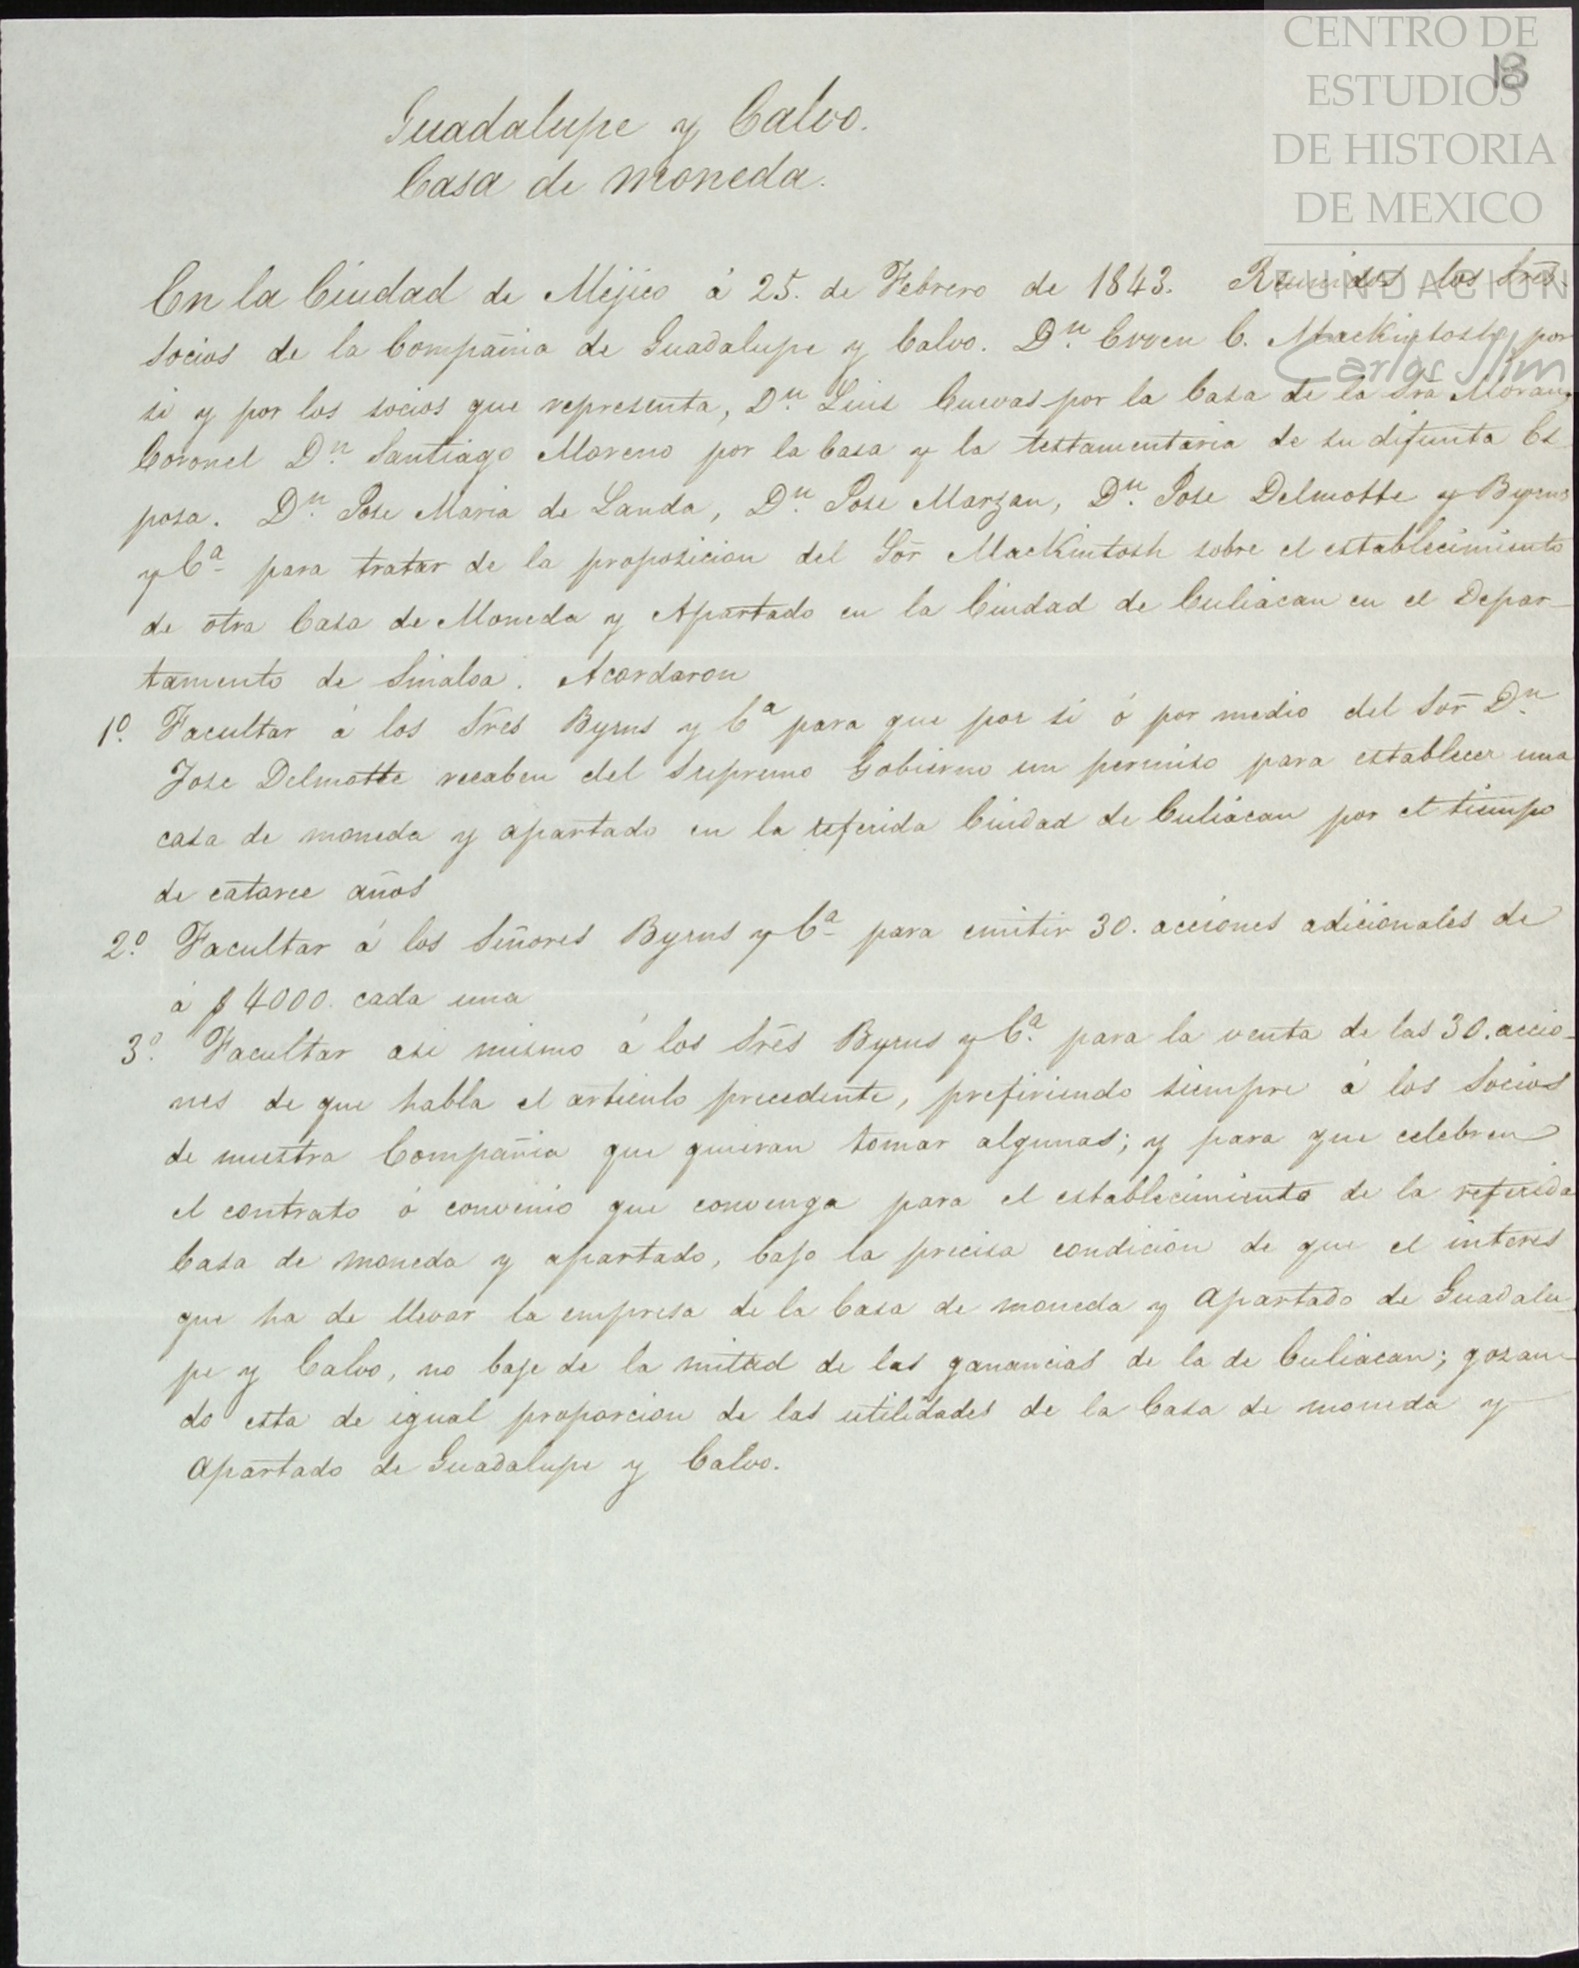 CENTRO DE
ESTUDIOS
DE HISTORIA
DE MEXICO
FUNDACION
Carlos Slim
18
Guadalupe y Calvo.
Casa de moneda.
En la Ciudad de Méjico á 25. de Febrero de 1843. Reunidos los Sres.
socios de la Compañia de Guadalupe y Calvo. Dn. Ewen C. Mackintosh, por
si y por los socios que representa, Dn. Luis Cuevas por la Casa de la Sra Moran,
Coronel Dn. Santiago Moreno por la Casa y la testamentaria de su difunta Es-
posa. Dn. Jose Maria de Landa, Dn. Jose Marzan, Dn. Jose Delmotte y Byrns
y Ca. para tratar de la proposicion del Sor Mackintosh sobre el establecimiento
de otra Casa de Moneda y Apartado en la Ciudad de Culiacan en el Depar-
tamento de Sinaloa. Acordaron
1o. Facultar á los Sres Byrns y Ca para que por si ó por medio del Sor Dn.
Jose Delmotte recaben del Supremo Gobierno un permiso para establecer una
casa de moneda y apartado en la referida Ciudad de Culiacan por el tiempo
de catorce años
2o. Facultar á los Señores Byrns y Ca. para emitir 30. acciones adicionales de
á $ 4000. cada una
3o. Facultar asi mismo á los Sres Byrns y Ca. para la venta de las 30. accio-
nes de que habla el articulo precedente, prefiriendo siempre á los Socios
de nuestra Compañia que quieran tomar algunas; y para que celebren
el contrato ó convenio que convenga para el establecimiento de la referida
Casa de moneda y apartado, bajo la precisa condicion de que el interes
que ha de llevar la empresa de la Casa de moneda y Apartado de Guadalu-
pe y Calvo, no baje de la mitad de las ganancias de la de Culiacan; gozan-
do esta de igual proporcion de las utilidades de la Casa de moneda y
Apartado de Guadalupe y Calvo.